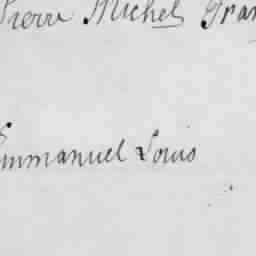 Pierre Michel Fran
Emmanuel Louis